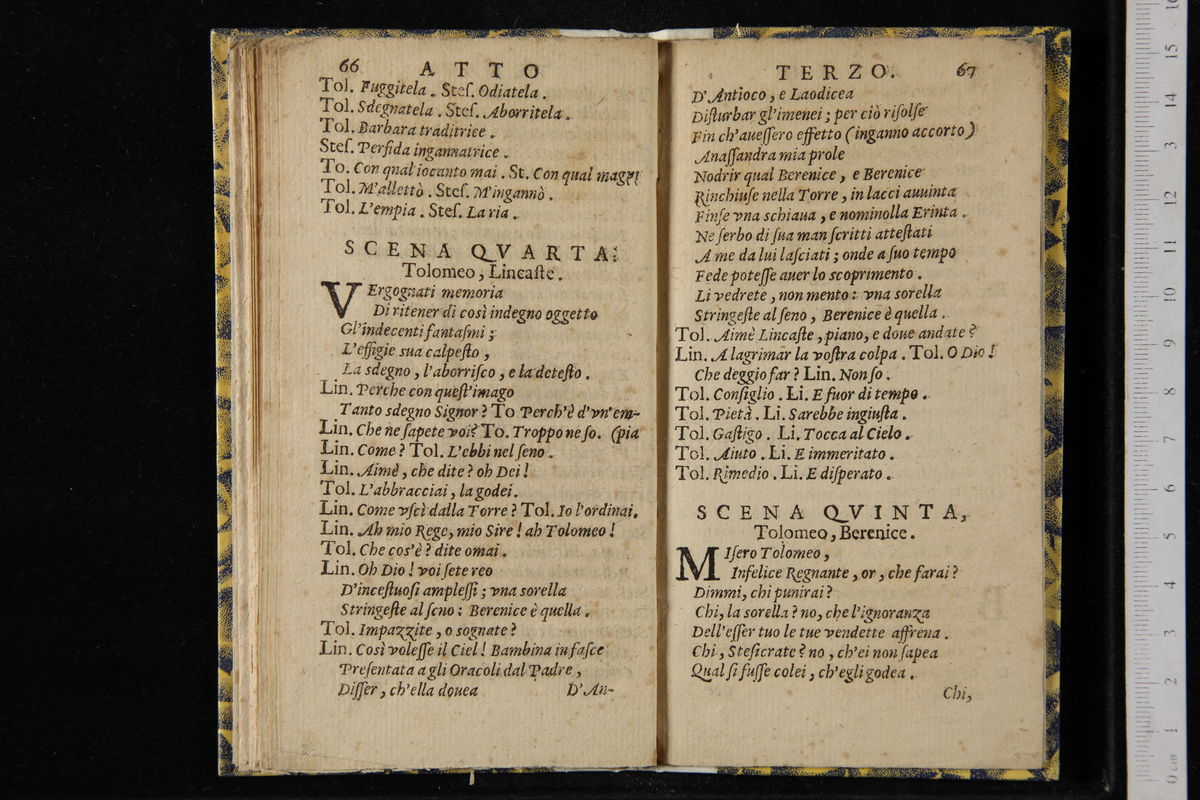 66 ATTO
Tol. Fuggitela. Steſ. Odiatela.
Tol. Sdegnatela. Steſ. Aborritela.
Tol. Barbara traditrice.
Steſ. Perfida ingannatrice.
To. Con qual incanto mai. St. Con qual
Tol. M'allettò. Steſ. M'ingannò.
Tol. L'empia. Steſ. La ria.
SCENA QVARTA.
Tolomeo, Lincaſte.
VErgognati memoria
Di ritener di così indegno oggetto
Gl'indecenti fantaſmi;
L'effigie sua calpeſto,
La sdegno, l'aborriſco, e la deteſto.
Lin. Perche con queſt'imago
Tanto sdegno Signor? To Perch'è d'vn'em-
Lin. Che ne ſapete voi? To. Troppo ne ſo. (pia
Lin. Come? Tol. L'ebbi nel ſeno.
Lin. Aimè, che dite? oh Dei!
Tol. L'abbracciai, la godei.
Lin. Come vſcì dalla Torre? Tol. Io l'ordinai.
Lin. Ah mio Rege, mio Sire! ah Tolomeo!
Tol. Che cos'è? dite omai.
Lin. Oh Dio! voi ſete reo
D'inceſtuoſi ampleſſi; vna sorella
Stringeſte al ſeno: Berenice è quella.
Tol. Impazzite, o sognate?
Lin. Così voleſſe il Ciel! Bambina in faſce
Preſentata a gli Oracoli dal Padre,
Diſſer, ch'ella douea
D'An-
TERZO. 67
D'Antioco, e Laodicea
Diſturbar gl'imenei; per ciò riſolſe
Fin ch'aueſſero effetto (inganno accorto)
Anaſſandra mia prole
Nodrir qual Berenice, e Berenice
Rinchiuſe nella Torre, in lacci auuinta
Finſe vna schiaua, e nominolla Erinta.
Ne ſerbo di ſua man ſcritti atteſtati
A me da lui laſciati; onde a ſuo tempo
Fede poteſſe auer lo scoprimento.
Li vedrete, non mento: vna sorella
Stringeſte al ſeno, Berenice è quella.
Tol. Aimè Lincaſte, piano, e doue andate?
Lin. A lagrimar la voſtra colpa. Tol. O Dio!
Che deggio far? Lin. Non ſo.
Tol. Conſiglio. Li. E fuor di tempo.
Tol. Pietà. Li. Sarebbe ingiuſta.
Tol. Gaſtigo. Li. Tocca al Cielo.
Tol. Aiuto. Li. E immeritato.
Tol. Rimedio. Li. E diſperato.
SCENA QVINTA,
Tolomeo, Berenice.
MIſero Tolomeo,
Infelice Regnante, or, che farai?
Dimmi, chi punirai?
Chi, la sorella? no, che l'ignoranza
Dell'eſſer tuo le tue vendette affrena.
Chi, Steſicrate? no, ch'ei non ſapea
Qual ſi fuſſe colei, ch'egli godea.
Chi,